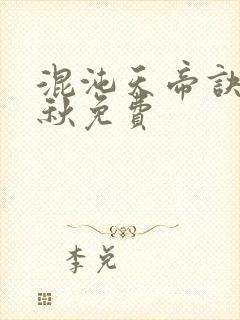 混沌天帝訣
秋免費
李兌